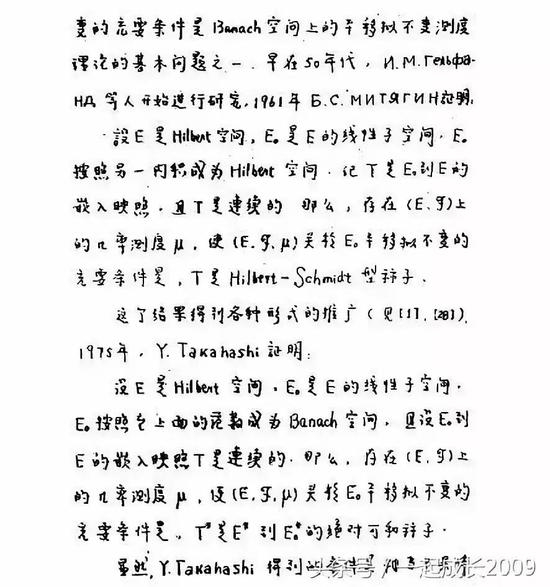 变的充要条件是 Banach 空间上的平移拟不变测度
理论的基本问题之一. 早在50年代, И.М.Гельфа-
НД 等人开始进行研究, 1961年 Б.С.МИТЯГИН 証明:
設 E 是 Hilbert 空间, E₀ 是 E 的线性子空间. E₀
按照另一内积成为 Hilbert 空间. 记 T 是 E₀ 到 E 的
嵌入映照. 且 T 是连续的. 那么, 存在 (E, 𝓕) 上
的几率测度 μ, 使 (E, 𝓕, μ) 关于 E₀ 平移拟不变的
充要条件是, T 是 Hilbert-Schmidt 型祘子.
这个结果得到各种形式的推广 (见[1], [28]).
1975年, Y. Takahashi 証明:
设 E 是 Hilbert 空间, E₀ 是 E 的线性子空间.
E₀ 按照它上面的范数成为 Banach 空间, 且设 E₀ 到
E 的嵌入映照 T 是连续的. 那么, 存在 (E, 𝓕) 上
的几率测度 μ, 使 (E, 𝓕, μ) 关于 E₀ 平移拟不变的
充要条件是, T* 是 E* 到 E₀* 的绝对可和祘子.
虽然, Y. Takahashi 得到
头条号/一起成长2009